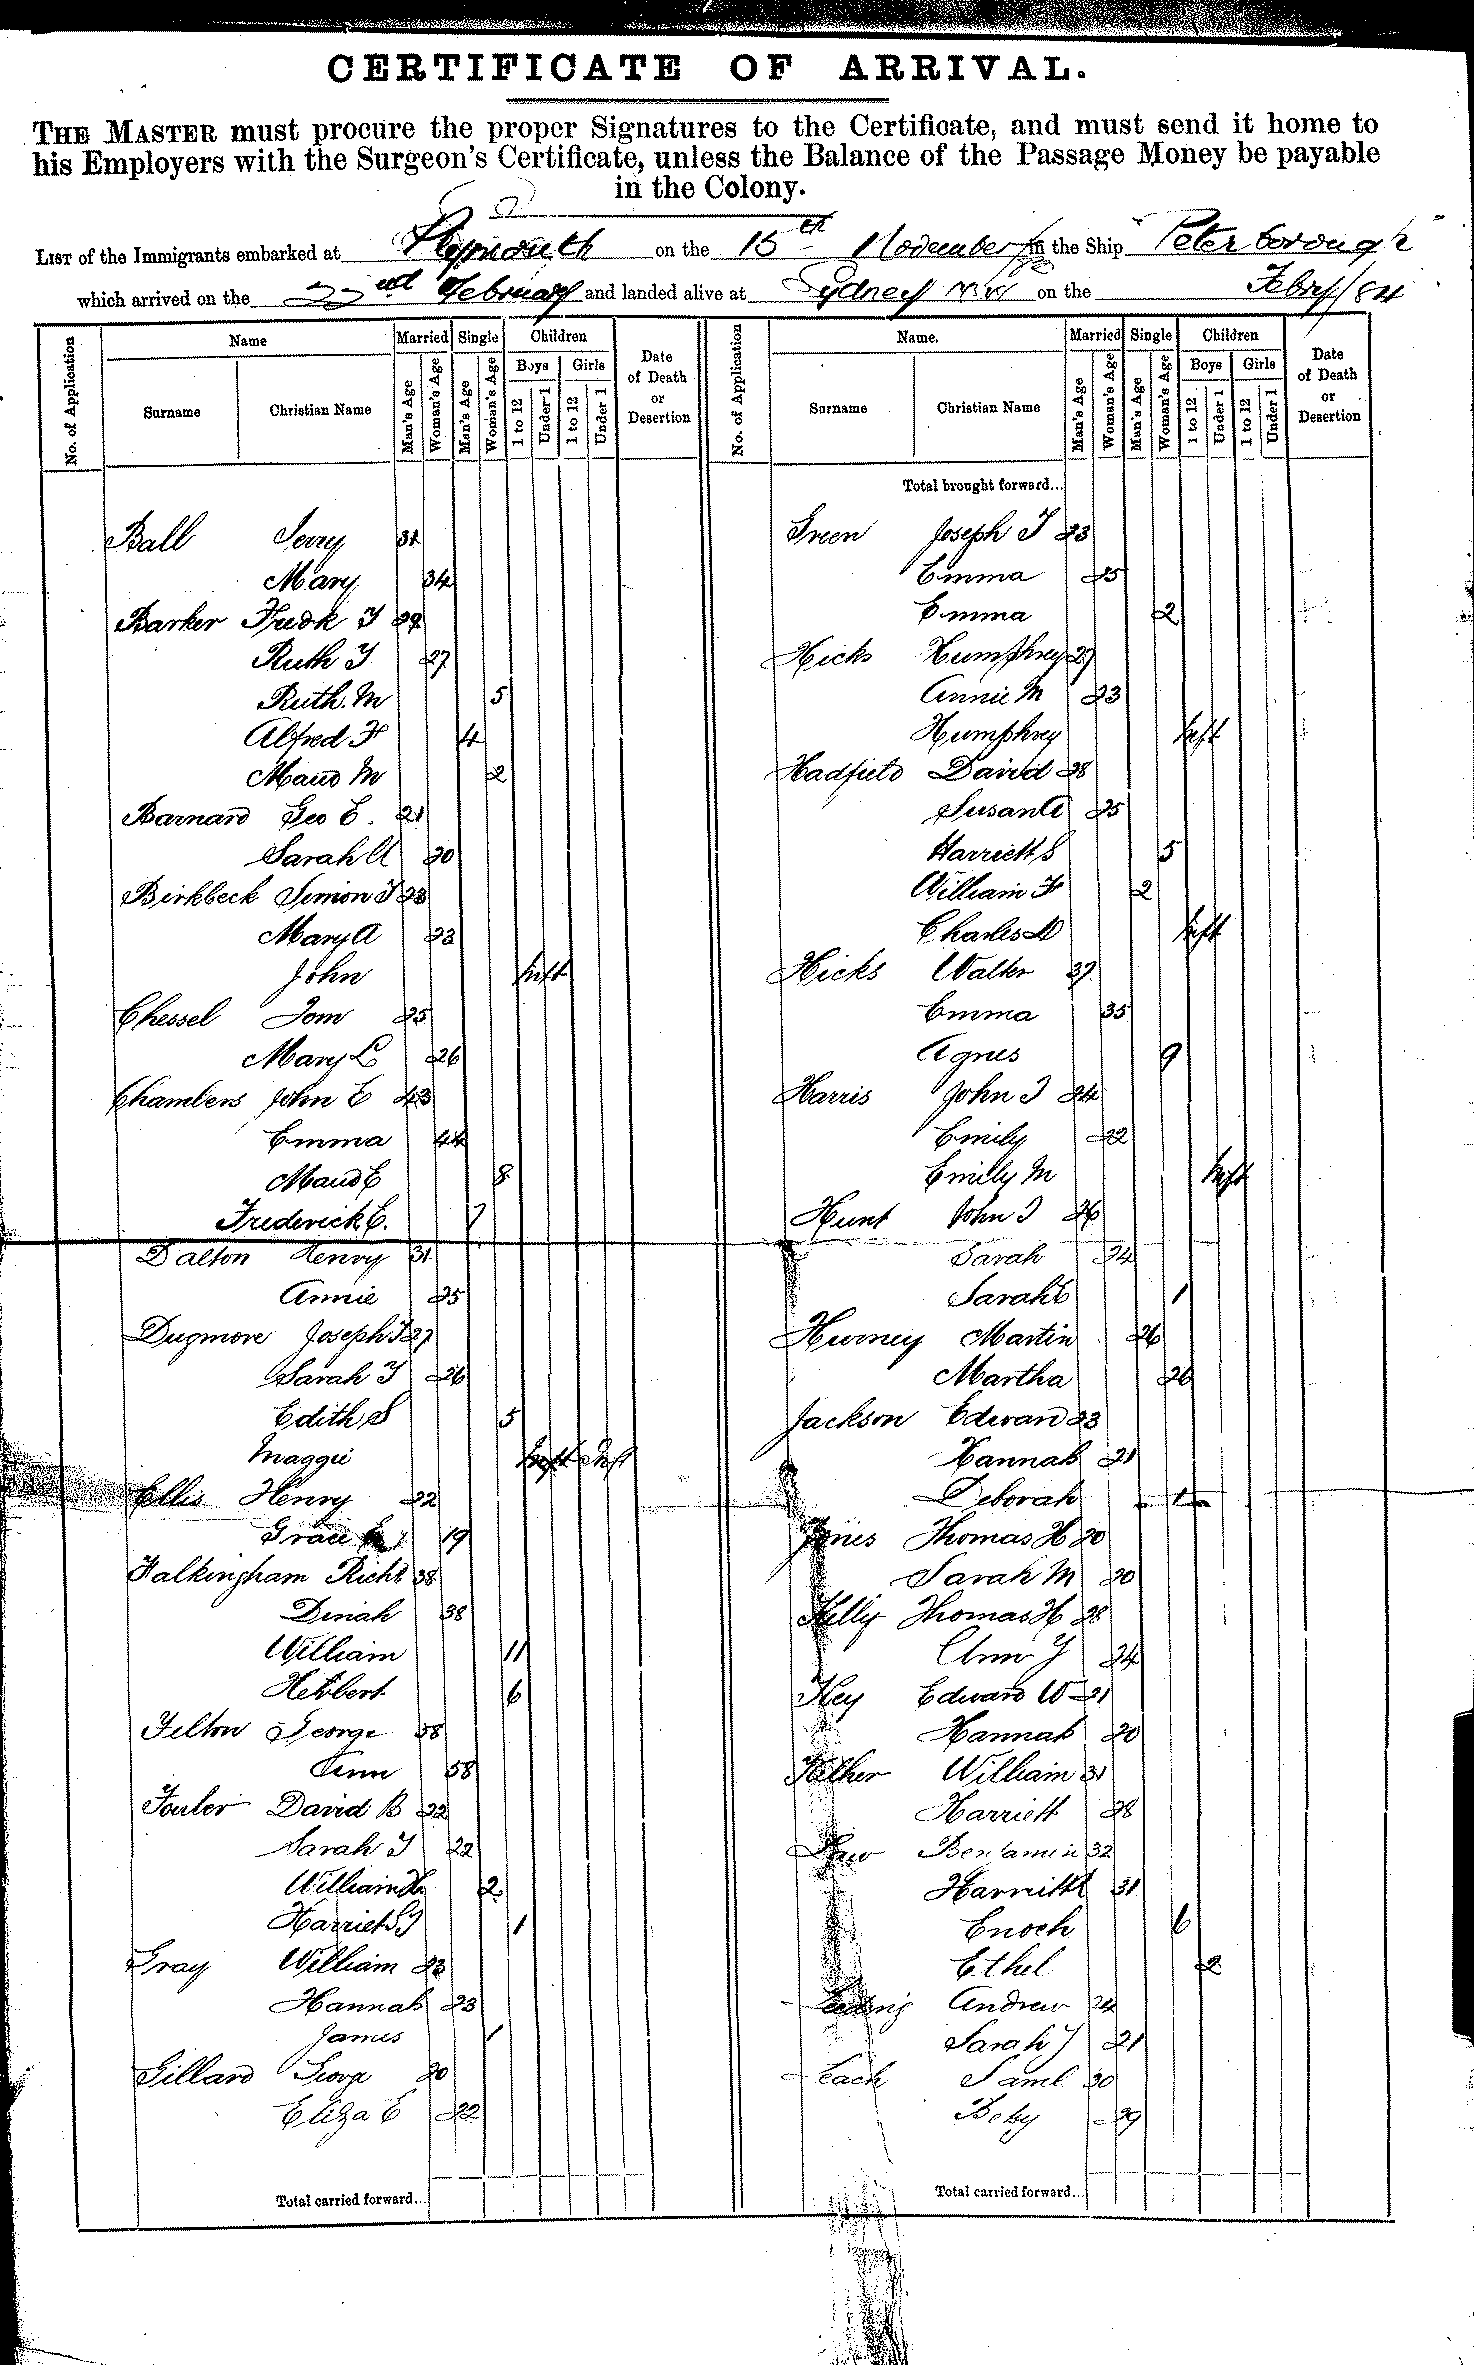 CERTIFICATE OF ARRIVAL.
THE MASTER must procure the proper Signatures to the Certificate, and must send it home to
his Employers with the Surgeon's Certificate, unless the Balance of the Passage Money be payable
in the Colony.
LIST of the Immigrants embarked at Plymouth on the 15th November in the Ship "Peterborough"
which arrived on the 22nd February and landed alive at Sydney NSW on the Febry/84
No. of Application Name Married Single Children Date of Death or Desertion
Surname Christian Name Man's Age Woman's Age Man's Age Woman's Age Boys 1 to 12 Under 1 Girls 1 to 12 Under 1
Ball 31
Mary 34
Barker Fredk J 29
Ruth J 27
Ruth M 5
Alfred F 4
Maud M 2
Barnard Geo E. 21
Sarah A 20
Birkbeck Simon J 23
Mary A 23
John Inft
Chessel Tom 25
Mary L 26
Chambers John E 43
Emma 44
Maud E 8
Frederick E. 7
Dalton Henry 31
Annie 25
Dugmore Joseph J 27
Sarah J 26
Edith S 5
Maggie Inft Inft
Ellis Henry 22
Grace 19
Falkingham Richd 38
Dinah 38
William 11
Herbert 6
Felton George 58
Ann 58
Fowler David B 22
Sarah J 22
William H 2
Harriet S J 1
Gray William 23
Hannah 23
James 1
Gillard George 20
Eliza E 22
Total carried forward...
No. of Application Name. Married Single Children Date of Death or Desertion
Surname Christian Name Man's Age Woman's Age Man's Age Woman's Age Boys 1 to 12 Under 1 Girls 1 to 12 Under 1
Total brought forward...
Green Joseph T 23
Emma 25
Emma 2
Hicks Humphrey 27
Annie M 23
Humphrey Inft
Hadfield David 28
Susan A 25
Harriett S 5
William F 2
Charles Inft
Hicks Walter 37
Emma 35
Agnes 9
Harris John J 24
Emily 22
Emily M Inft
Hunt John J 26
Sarah 24
Sarah E 1
Hurney Martin 26
Martha 26
Jackson Edward 23
Hannah 21
Deborah 1
Jones Thomas H 20
Sarah M 20
Kelly Thomas H 28
Ann J 24
Key Edward W 21
Hannah 20
William 31
Harriett 28
Law Benjamin 32
Harriett 31
Enoch 6
Ethel 2
Andrew 24
Sarah J 21
Leach Saml 30
Betsy 29
Total carried forward...